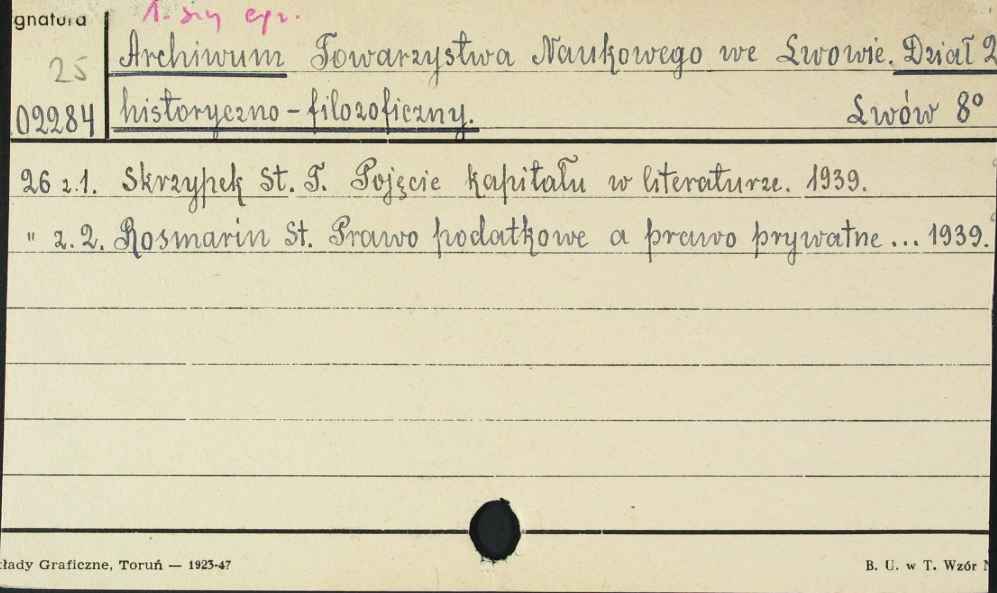 1-szy egz.
gnatura
25
02284
Archiwum Towarzystwa Naukowego we Lwowie. Dział 2
historyczno-filozoficzny. Lwów 8°
26 z.1. Skrzypek St. T. Pojęcie kapitału w literaturze. 1939.
" z. 2. Rosmarin St. Prawo podatkowe a prawo prywatne ... 1939.
kłady Graficzne, Toruń — 1923-47 B. U. w T. Wzór N